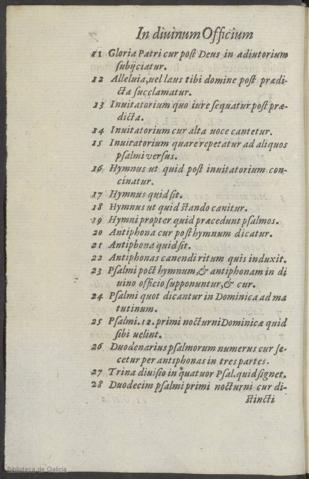 In diuinum Officium
11 Gloria Patri cur post Deus in adiutorium
subijciatur.
12 Alleluia, uel laus tibi domine post prædi-
cta succlamatur.
13 Inuitatorium quo iure sequatur post præ-
dicta.
14 Inuitatorium cur alta uoce cantetur.
15 Inuitatorium quare repetatur ad aliquos
psalmi versus.
16 Hymnus ut quid post inuitatorium con-
cinatur.
17 Hymnus quid sit.
18 Hymnus ut quid stando canitur.
19 Hymni propter quid præcedunt psalmos.
20 Antiphona cur post hymnum dicatur.
21 Antiphona quid sit.
22 Antiphonas canendi ritum quis induxit.
23 Psalmi post hymnum, & antiphonam in di
uino officio supponuntur, & cur.
24 Psalmi quot dicantur in Dominica ad ma
tutinum.
25 Psalmi .12. primi nocturni Dominicæ quid
sibi uelint.
26 Duodenarius psalmorum numerus cur se-
cetur per antiphonas in tres partes.
27 Trina diuisio in quatuor Psal. quid signet.
28 Duodecim psalmi primi nocturni cur di-
stincti
Biblioteca de Galicia